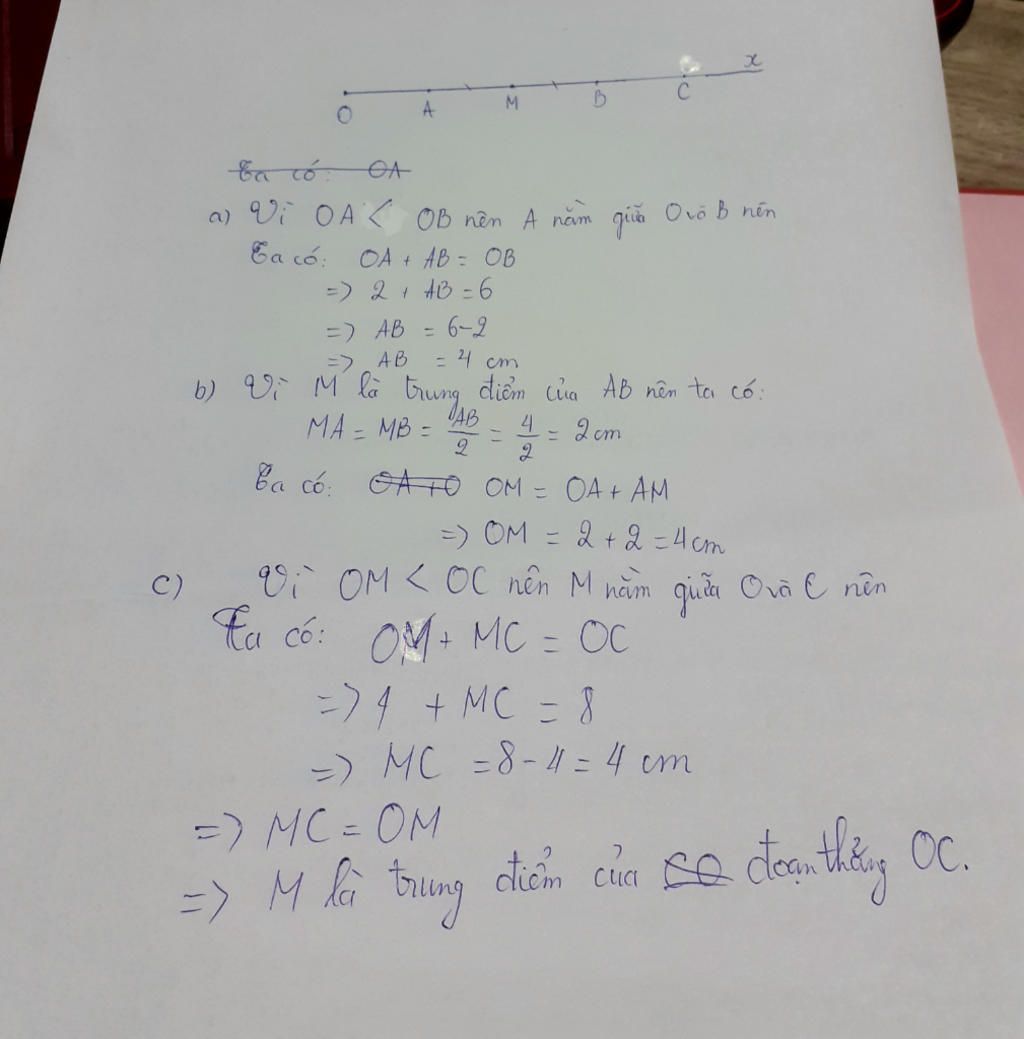 x
O A M B C
Ta có: OA
a) Vì OA < OB nên A nằm giữa O và B nên
Ta có: OA + AB = OB
=> 2 + AB = 6
=> AB = 6-2
=> AB = 4 cm
b) Vì M là trung điểm của AB nên ta có:
MA = MB = AB/2 = 4/2 = 2 cm
Ta có: OA + O OM = OA + AM
=> OM = 2 + 2 = 4 cm
c) Vì OM < OC nên M nằm giữa O và C nên
Ta có: OM + MC = OC
=> 4 + MC = 8
=> MC = 8 - 4 = 4 cm
=> MC = OM
=> M là trung điểm của đoạn thẳng OC.